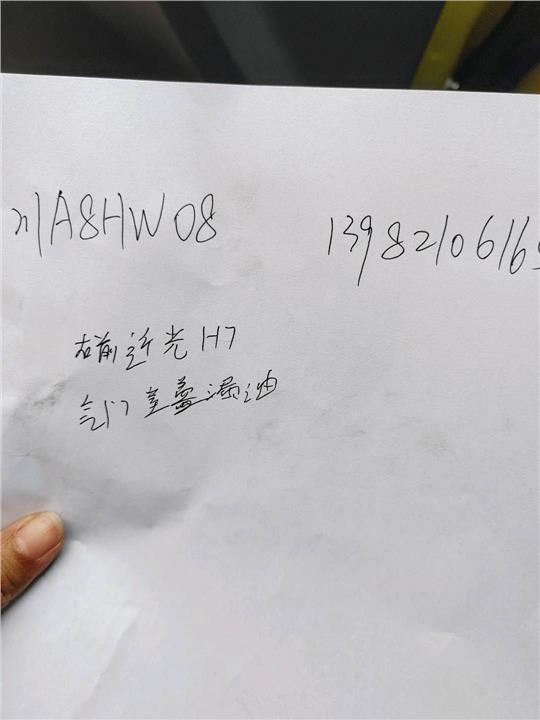 川A8HW08 1398210616
右前近光H7
气门室盖漏油